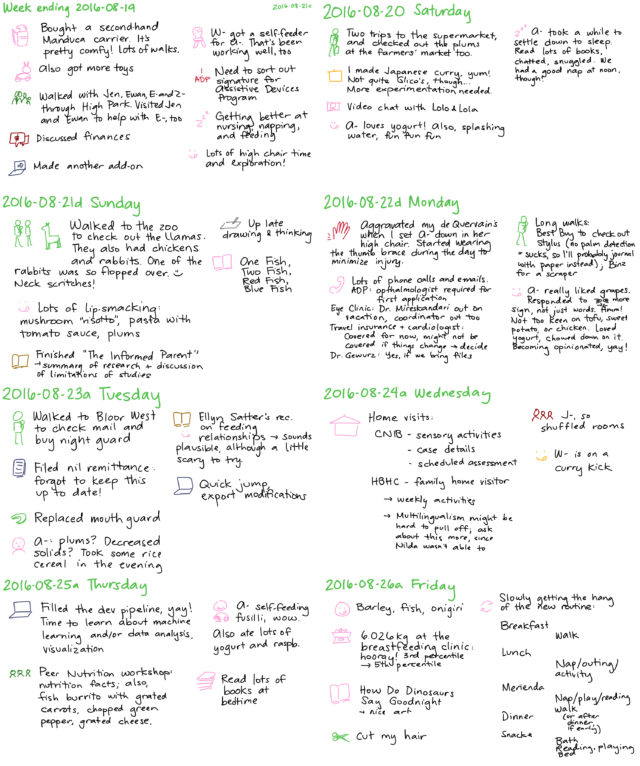 Week ending 2016-08-19
2016-08-21c
Bought a secondhand
Manduca carrier. It's
pretty comfy! Lots of walks.
Also got more toys
Walked with Jen, Ewan, E- and Z-
through High Park. Visited Jen
and Ewan to help with E-, too
Discussed finances
Made another add-on
W- got a self-feeder
for A-. That's been
working well, too
ADP
Need to sort out
signature for
Assistive Devices
Program
Getting better at
nursing, napping,
and feeding
Lots of high chair time
and exploration!
2016-08-20 Saturday
Two trips to the supermarket,
and checked out the plums
at the farmers' market too.
I made Japanese curry, yum!
Not quite Glico's, though...
More experimentation needed.
Video chat with Lolo & Lola
A- loves yogurt! Also, splashing
water, fun fun fun
A- took a while to
settle down to sleep.
Read lots of books,
chatted, snuggled. We
had a good nap at noon,
though!
2016-08-21d Sunday
Walked to the zoo
to check out the llamas.
They also had chickens
and rabbits. One of the
rabbits was so flopped over.
Neck scritches!
Lots of lip-smacking:
mushroom "risotto", pasta with
tomato sauce, plums
Finished "The Informed Parent"
→ summary of research + discussion
of limitations of studies
Up late
drawing & thinking
One Fish,
Two Fish,
Red Fish,
Blue Fish
2016-08-22d Monday
Aggravated my de Quervain's
when I set A- down in her
high chair. Started wearing
the thumb brace during the day to
minimize injury.
Lots of phone calls and emails.
ADP: opthalmologist required for
first application
Eye Clinic: Dr. Mireskandari out on
vacation, coordinator out too
Travel insurance + cardiologist:
Covered for now, might not be
covered if things change → decide
Dr. Gewurz: Yes, if we bring files
Long walks:
Best Buy to check out
Stylus (no palm detection
* sucks, so I'll probably journal
with paper instead), Binz
for a scraper
A- really liked grapes.
Responded to more
sign, not just words. Hmm!
Not too keen on tofu, sweet
potato, or chicken. Loved
yogurt, chowed down on it.
Becoming opinionated, yay!
2016-08-23a Tuesday
Walked to Bloor West
to check mail and
buy night guard
Filed nil remittance.
forgot to keep this
up to date!
Replaced mouth guard
A-: plums? Decreased
solids? Took some rice
cereal in the evening
Ellyn Satter's rec.
on feeding
relationships → sounds
plausible, although a little
scary to try
Quick jump,
export modifications
2016-08-24a Wednesday
Home visits:
CNIB - sensory activities
- case details
- scheduled assessment
HBHC - family home visitor
→ weekly activities
→ Multilingualism might be
hard to pull off; ask
about this more, since
Nilda wasn't able to
J-, so
shuffled rooms
W- is on a
curry kick
2016-08-25a Thursday
Filled the dev pipeline, yay!
Time to learn about machine
learning and/or data analysis,
visualization
Peer Nutrition workshop:
nutrition facts; also,
fish burrito with grated
carrots, chopped green
pepper, grated cheese.
A- self-feeding
fusilli, wow.
Also ate lots of
yogurt and raspb.
Read lots of
books at
bedtime
2016-08-26a Friday
Barley, fish, onigiri
6.026 kg at the
breastfeeding clinic:
hooray! 3rd percentile
→ 5th percentile
How Do Dinosaurs
Say Goodnight
→ nice art
Cut my hair
Slowly getting the hang
of the new routine:
Breakfast
Walk
Lunch
Nap/outing/
activity
Merienda
Nap/play/reading
walk
Dinner
(or after
dinner,
if early)
Snacke
Bath
Reading, playing
Bed